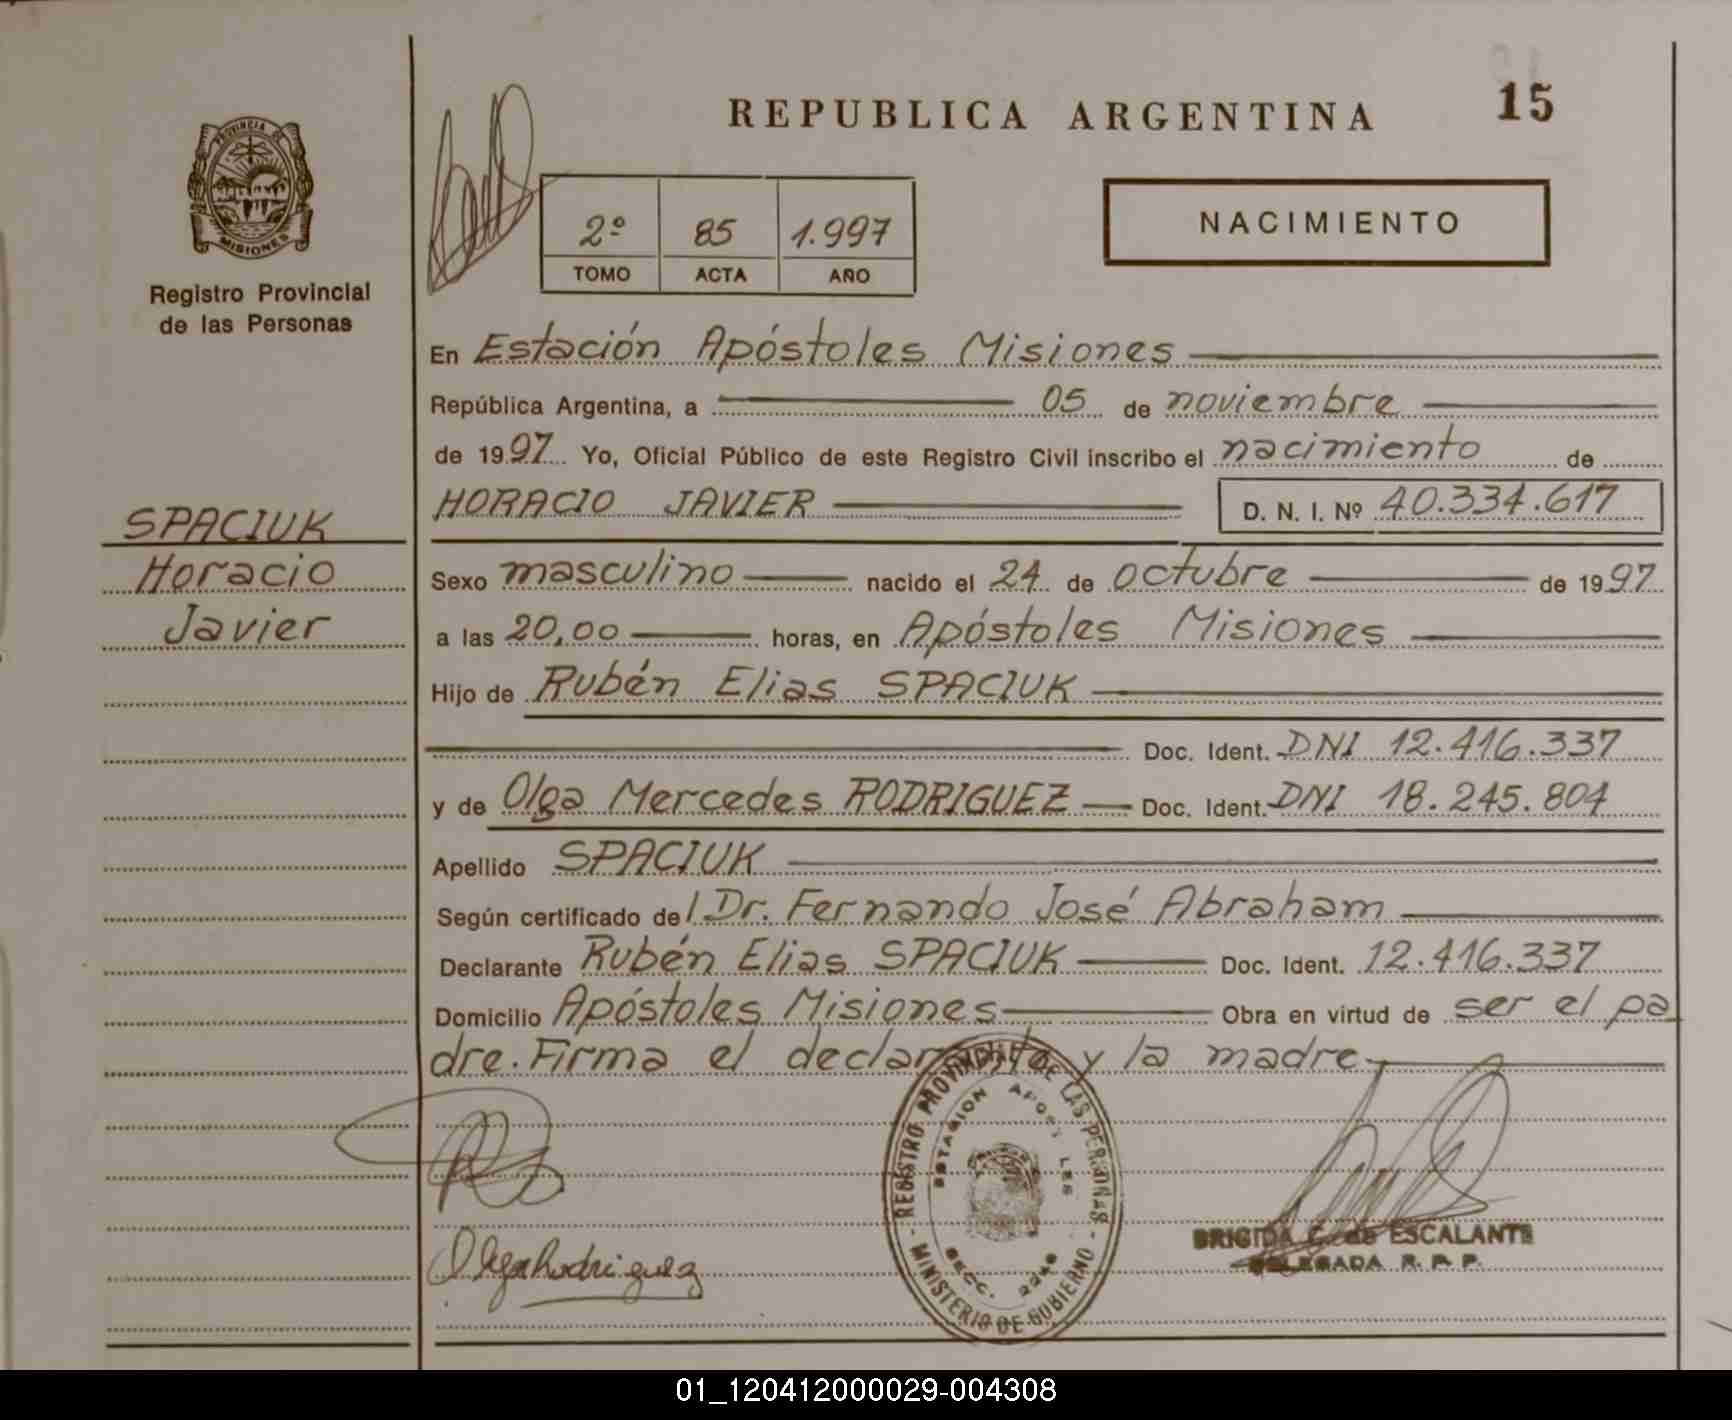 REPUBLICA ARGENTINA
15
PROVINCIA DE
MISIONES
Registro Provincial
de las Personas
2º 85 1.997
TOMO ACTA AÑO
NACIMIENTO
En Estación Apóstoles Misiones
República Argentina, a 05 de noviembre
de 1997 Yo, Oficial Público de este Registro Civil inscribo el nacimiento de
HORACIO JAVIER D. N. I. Nº 40.334.617
SPACIUK
Horacio
Javier
Sexo masculino nacido el 24 de octubre de 1997
a las 20,00 horas, en Apóstoles Misiones
Hijo de Rubén Elias SPACIUK
Doc. Ident. DNI 12.416.337
y de Olga Mercedes RODRIGUEZ Doc. Ident. DNI 18.245.804
Apellido SPACIUK
Según certificado de/ Dr. Fernando José Abraham
Declarante Rubén Elias SPACIUK Doc. Ident. 12.416.337
Domicilio Apóstoles Misiones Obra en virtud de ser el pa
dre. Firma el declarante y la madre
REGISTRO PROVINCIAL DE LAS PERSONAS - MINISTERIO DE GOBIERNO -
ESTACION APOSTOLES
SECC.
Olga Rodriguez
BRIGIDA C. de ESCALANTE
DELEGADA R. P. P.
01_120412000029-004308